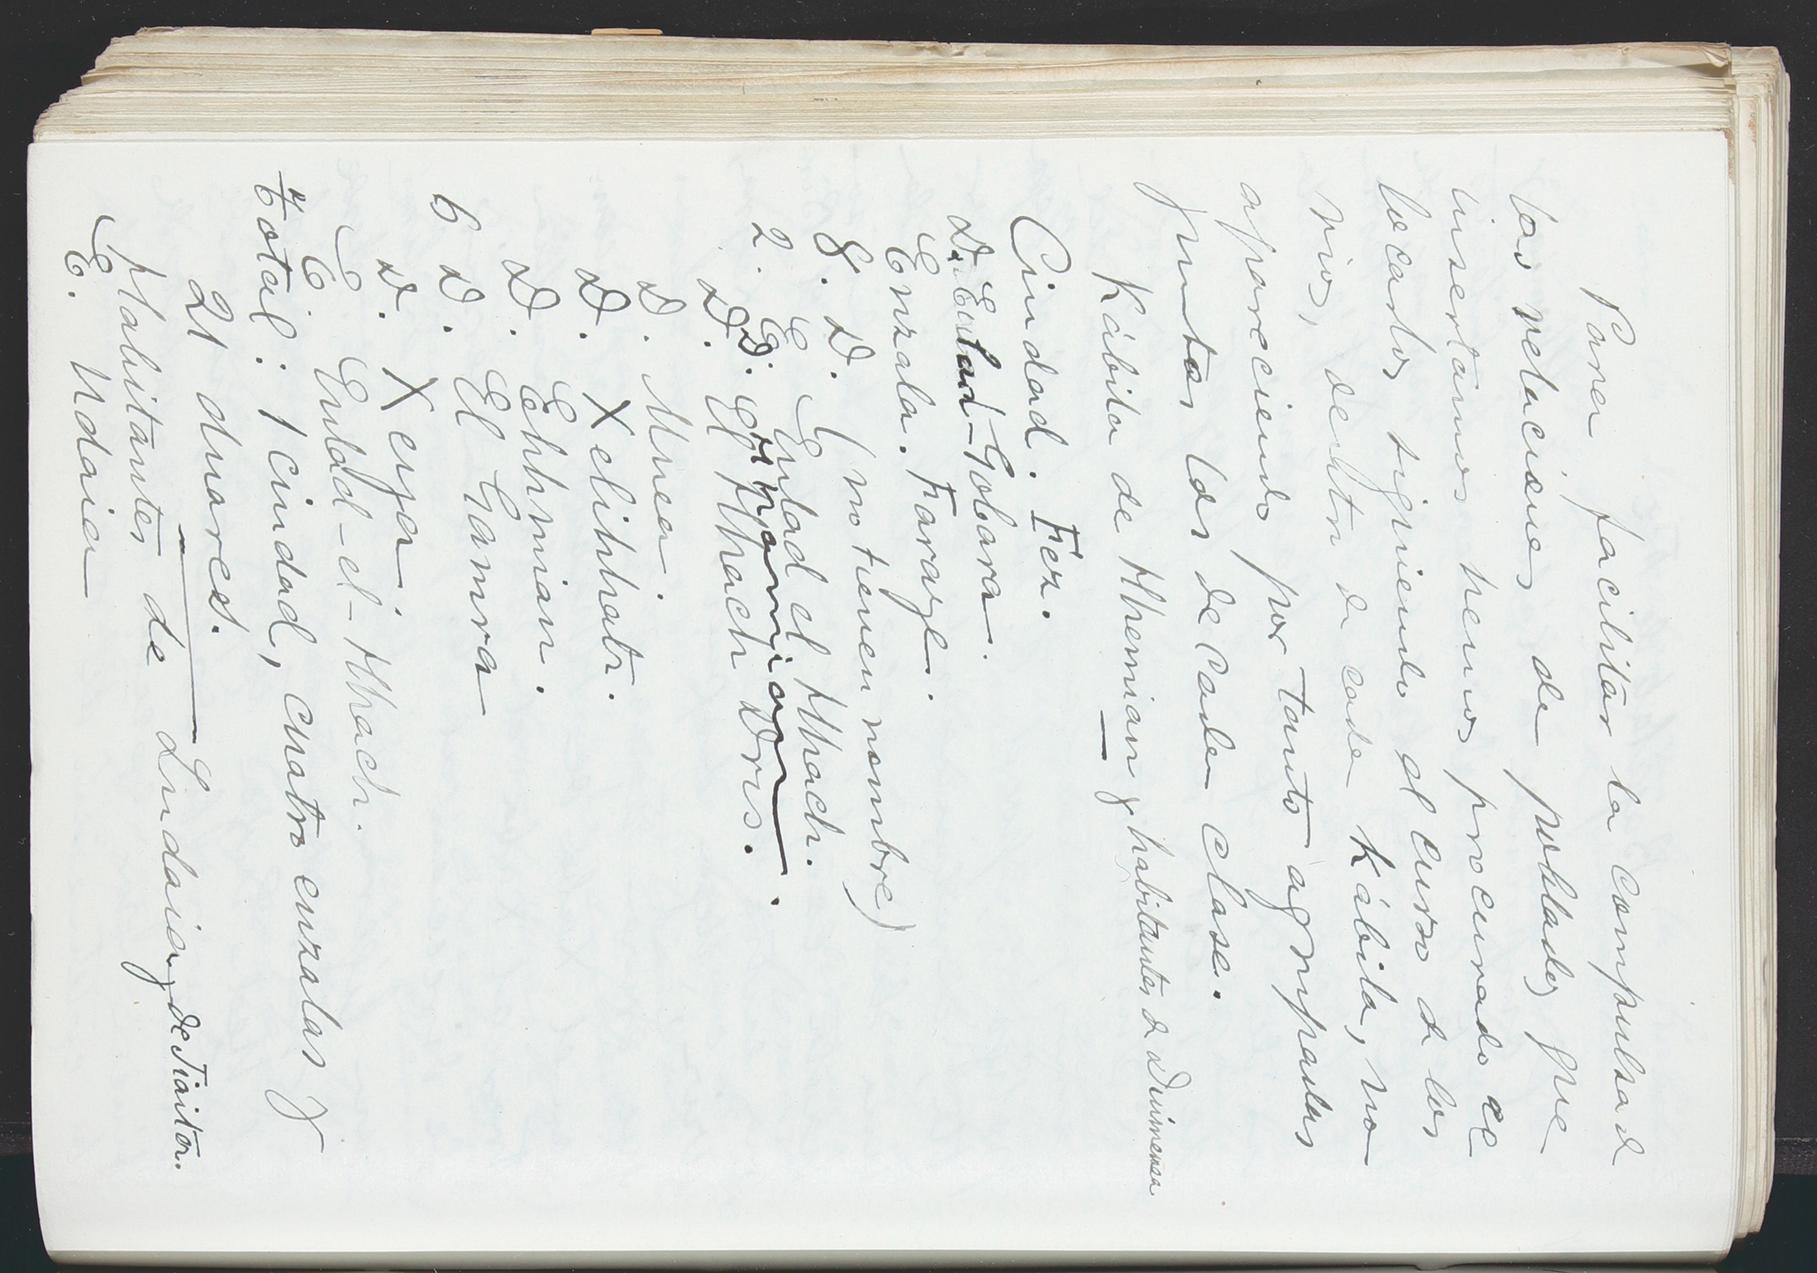 Para facilitar la compulsa de
las relaciones de poblados que
insertamos hemos procurado co
locarlos siguiendo el curso de los
rios, dentro de cada Kábila, no
apareciendo por tanto agrupadas
juntas las de cada clase.
Kábila de Hhemian y habitantes de Duimensa
Ciudad. Fez.
D. Eulad-Gobara.
Enzala. Faragt.
8. D. (no tienen nombre)
E Eulad el Hhach.
2. D. Ehhamian.
D. El Hhach Dris.
D. Muea.
D. Xelihhatr.
D. Ehhmian.
6 D. El Gamra
D. Xerga.
E. Eulad-el-Hhach.
Total: 1 ciudad, cuatro enzalas y
21 duares.
Habitantes de Lindaia y de Tiaitor.
E. Ndaia